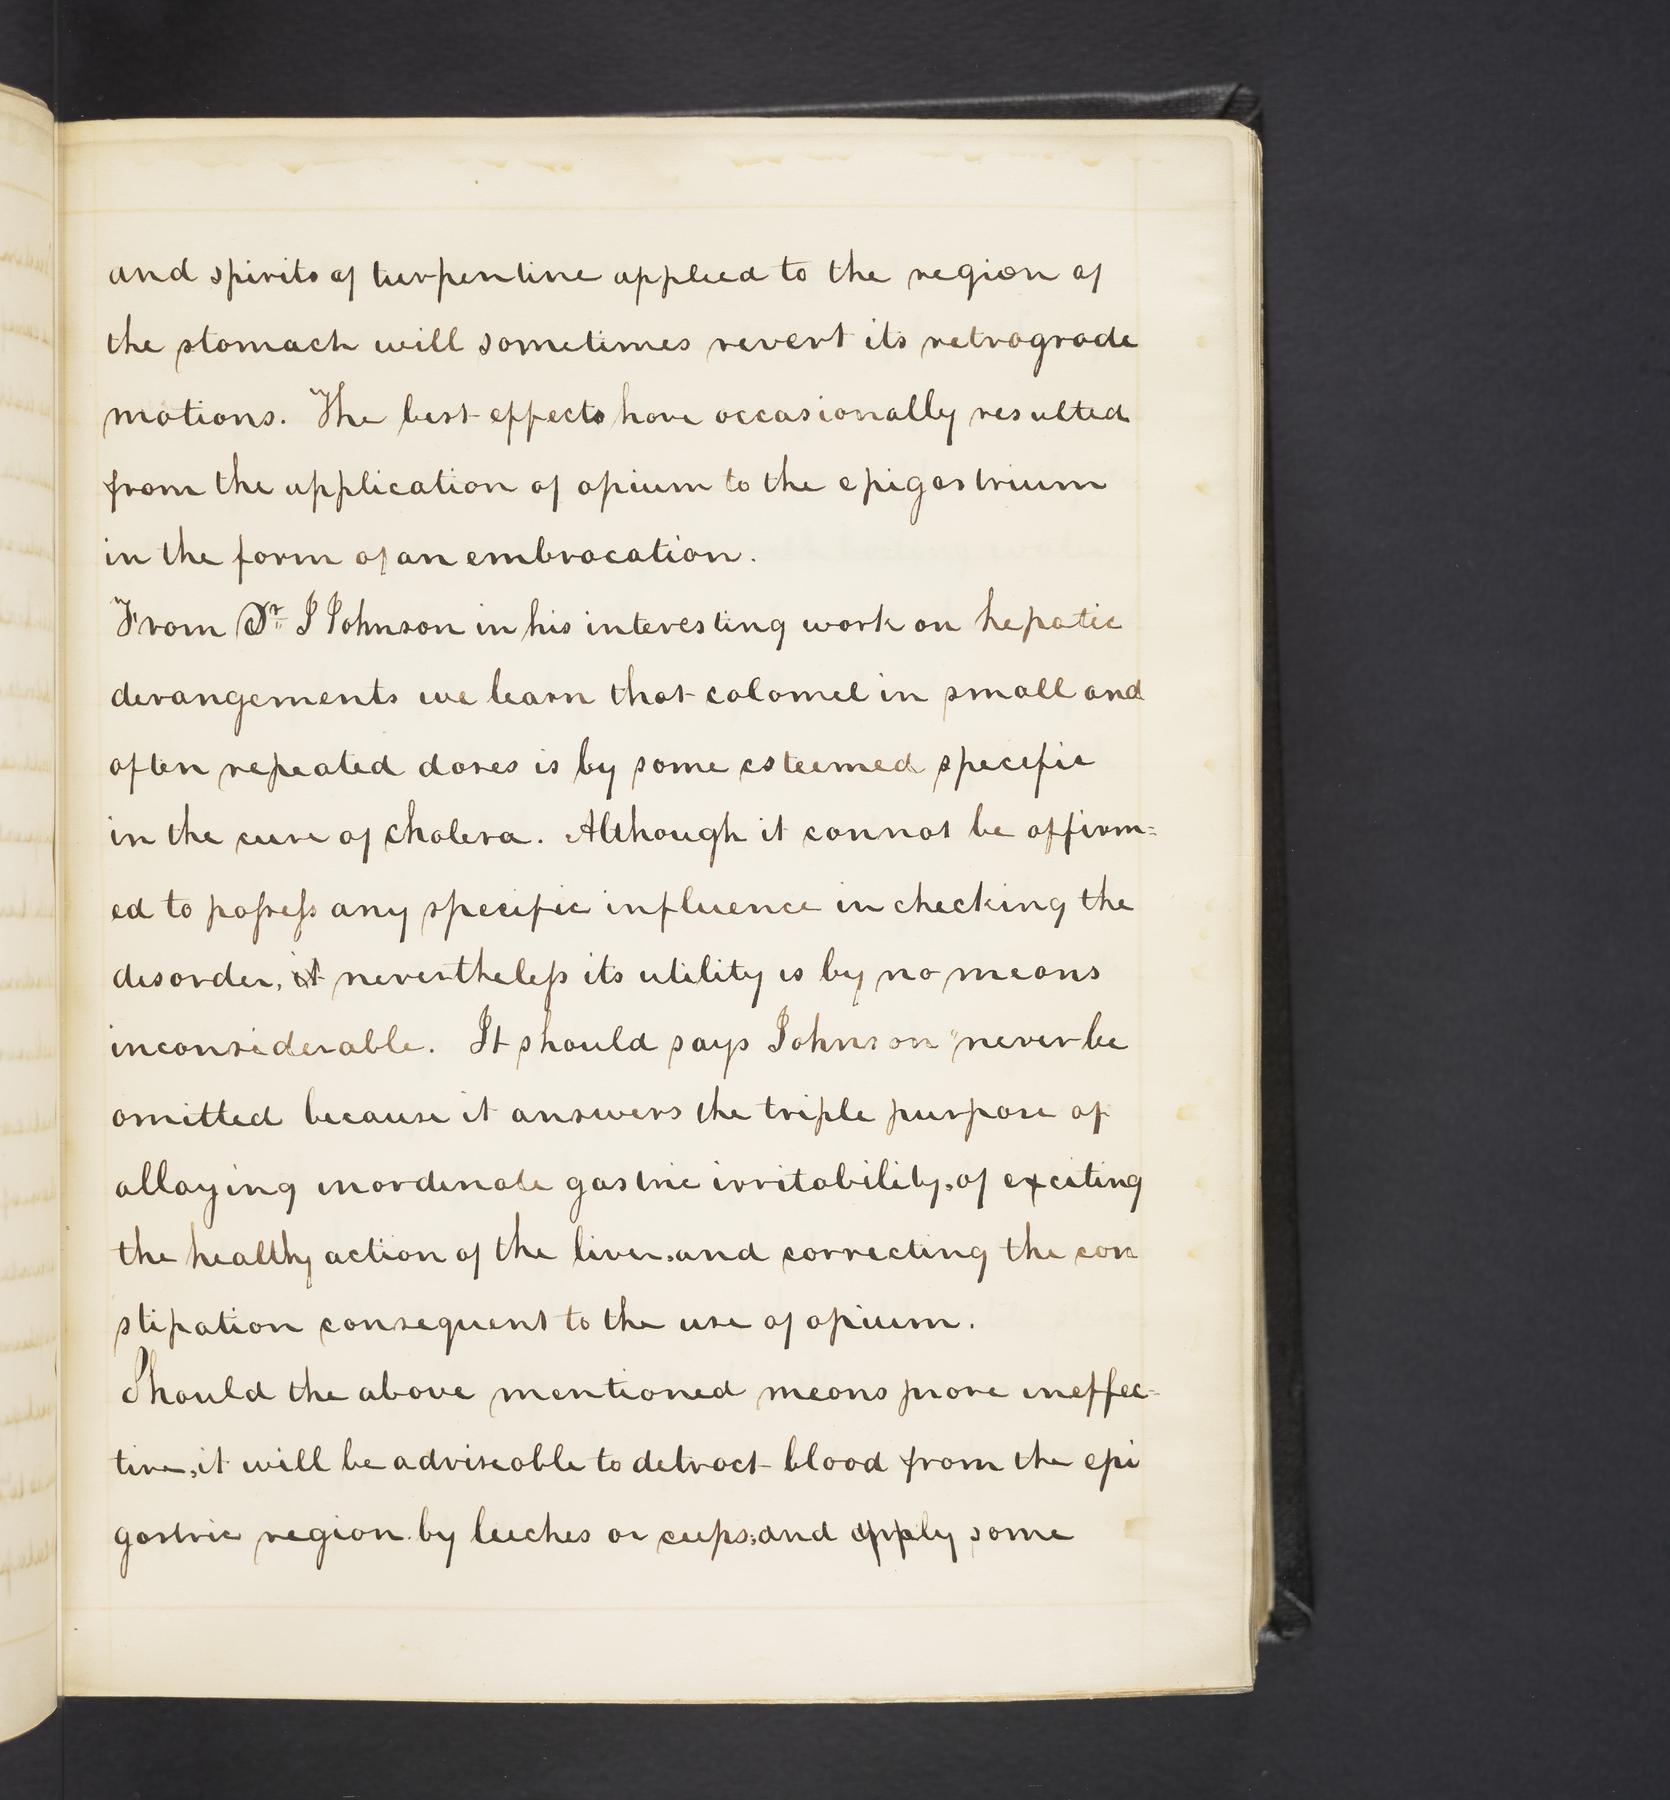 and spirits of turpentine applied to the region of
the stomach will sometimes revert its retrograde
motions. The best effects have occasionally resulted
from the application of opium to the epigastrium
in the form of an embrocation.
From Dr. J Johnson in his interesting work on hepatic
derangements we learn that calomel in small and
often repeated doses is by some esteemed specific
in the cure of cholera. Although it cannot be affirm=
ed to possess any specific influence in checking the
disorder, it nevertheless its utility is by no means
inconsiderable. It should says Johnson "never be
omitted because it answers the triple purpose of
allaying inordinate gastric irritability, of exciting
the healthy action of the liver, and correcting the con
stipation consequent to the use of opium.
Should the above mentioned means prove ineffec=
tive, it will be adviseable to detract blood from the epi
gastric region by leeches or cups; and apply some